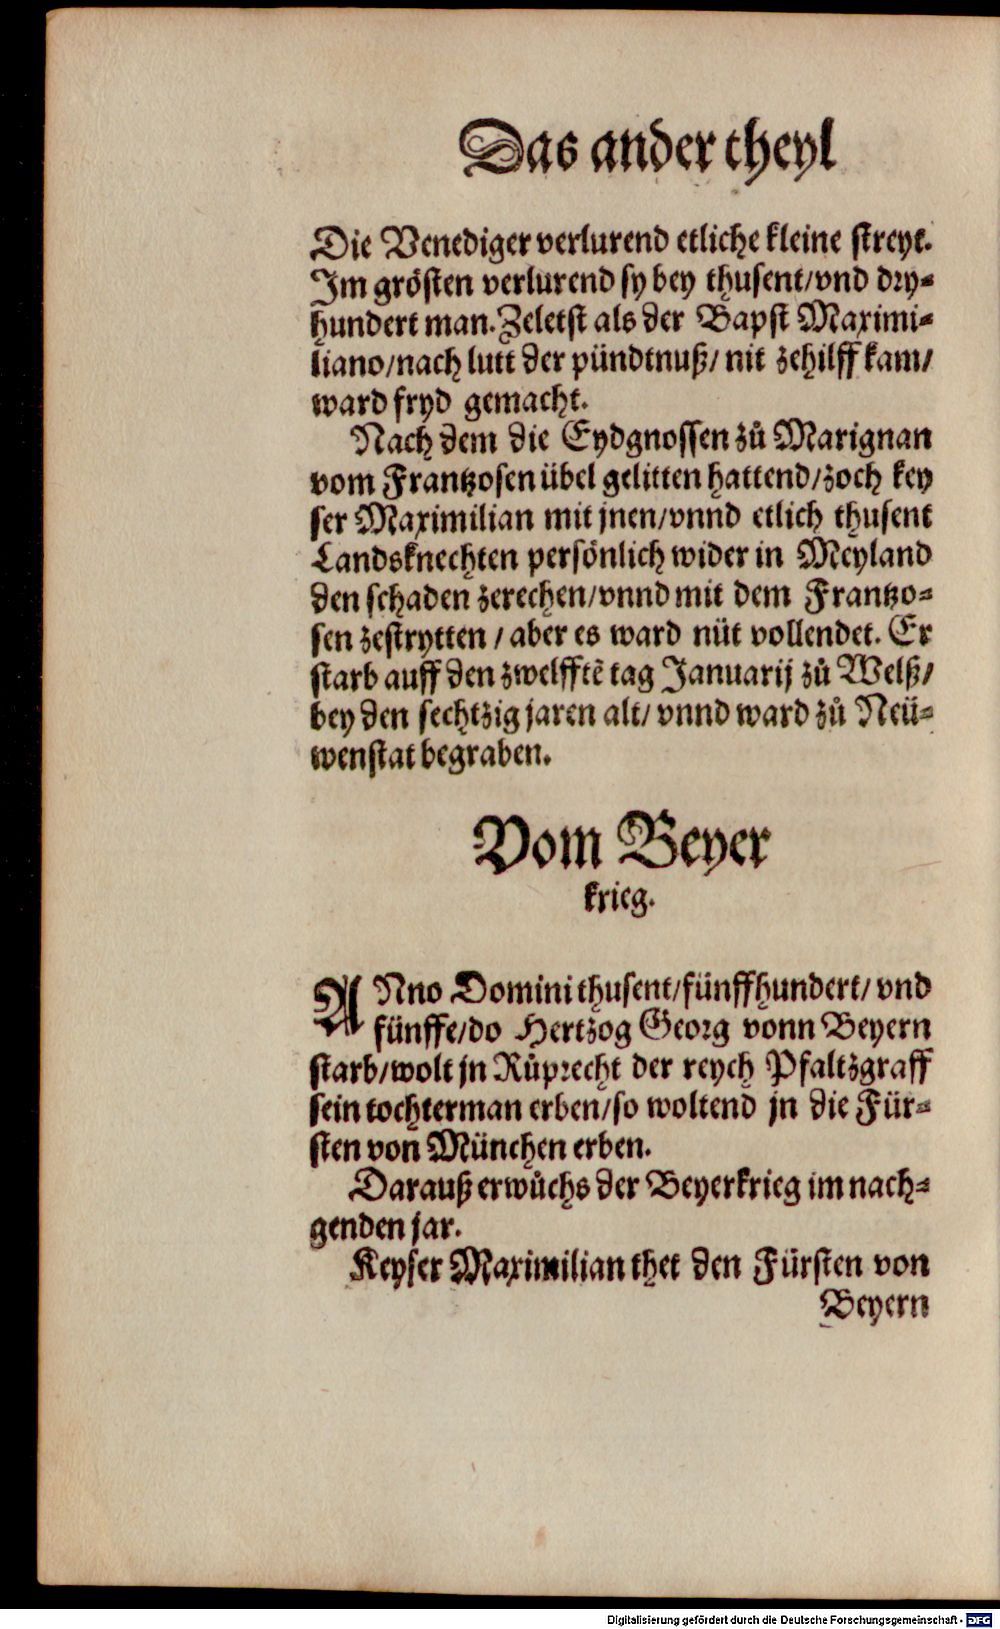 Das ander theyl
Die Venediger verlurend etliche kleine streyt.
Im grösten verlurend sy bey thusent/vnd dry⸗
hundert man. Zeletst als der Bapst Maximi⸗
liano/nach lutt der pündtnuß/ nit zehilff kam/
ward fryd gemacht.
Nach dem die Eydgnossen zů Marignan
vom Frantzosen übel gelitten hattend/zoch key
ser Maximilian mit jnen/vnnd etlich thusent
Landsknechten persönlich wider in Meyland
den schaden zerechen/vnnd mit dem Frantzo⸗
sen zestrytten / aber es ward nüt vollendet. Er
starb auff den zwelfftē tag Januarij zů Welß/
bey den sechtzig jaren alt/ vnnd ward zů Neü⸗
wenstat begraben.
Vom Beyer
krieg.
ANno Domini thusent/fünffhundert/ vnd
fünffe/do Hertzog Georg vonn Beyern
starb/wolt jn Růprecht der reych Pfaltzgraff
sein tochterman erben/so woltend jn die Für⸗
sten von München erben.
Darauß erwůchs der Beyerkrieg im nach⸗
genden jar.
Keyser Maximilian thet den Fürsten von
Beyern
Digitalisierung gefördert durch die Deutsche Forschungsgemeinschaft - DFG